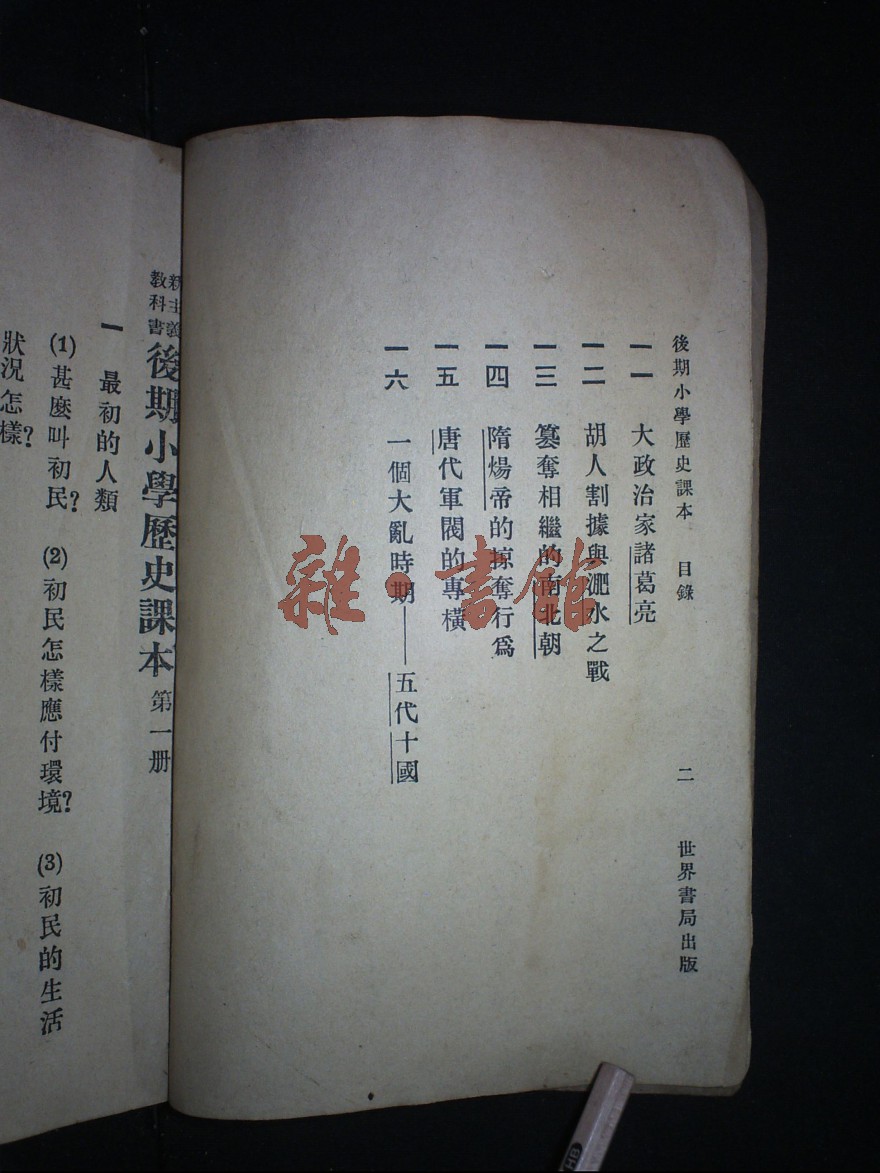 後期小學歷史課本 目錄 二 世界書局出版
一一 大政治家諸葛亮
一二 胡人割據與淝水之戰
一三 篡奪相繼的南北朝
一四 隋煬帝的掠奪行爲
一五 唐代軍閥的專橫
一六 一個大亂時期——五代十國
雜·書館
新主義
教科書
後期小學歷史課本 第一册
一 最初的人類
(1)甚麼叫初民? (2)初民怎樣應付環境? (3)初民的生活
狀況怎樣?
HB